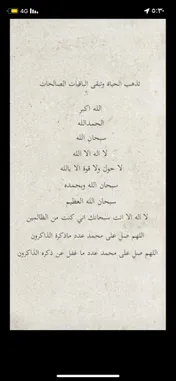 4G ٥:٣٠
تذهب الحياة وتبقى الباقيات الصالحات
الله اكبر
الحمدالله
سبحان الله
لا اله الا الله
لا حول ولا قوة الا بالله
سبحان الله وبحمده
سبحان الله العظيم
لا اله الا انت سبحانك اني كنت من الظالمين
اللهم صل على محمد عدد ماذكره الذاكرون
اللهم صل على محمد عدد ما غفل عن ذكره الذاكرون